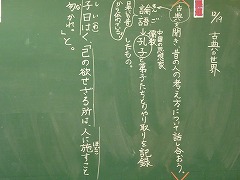 12/19 古典の世界
古典を聞き、昔の人の考え方について話し合おう。
中国の思想家
論語 孔子と弟子たちのやり取りを記録
したもの。
子曰はく、「己の欲せざる所は、人に施すこと
勿かれ。」と。